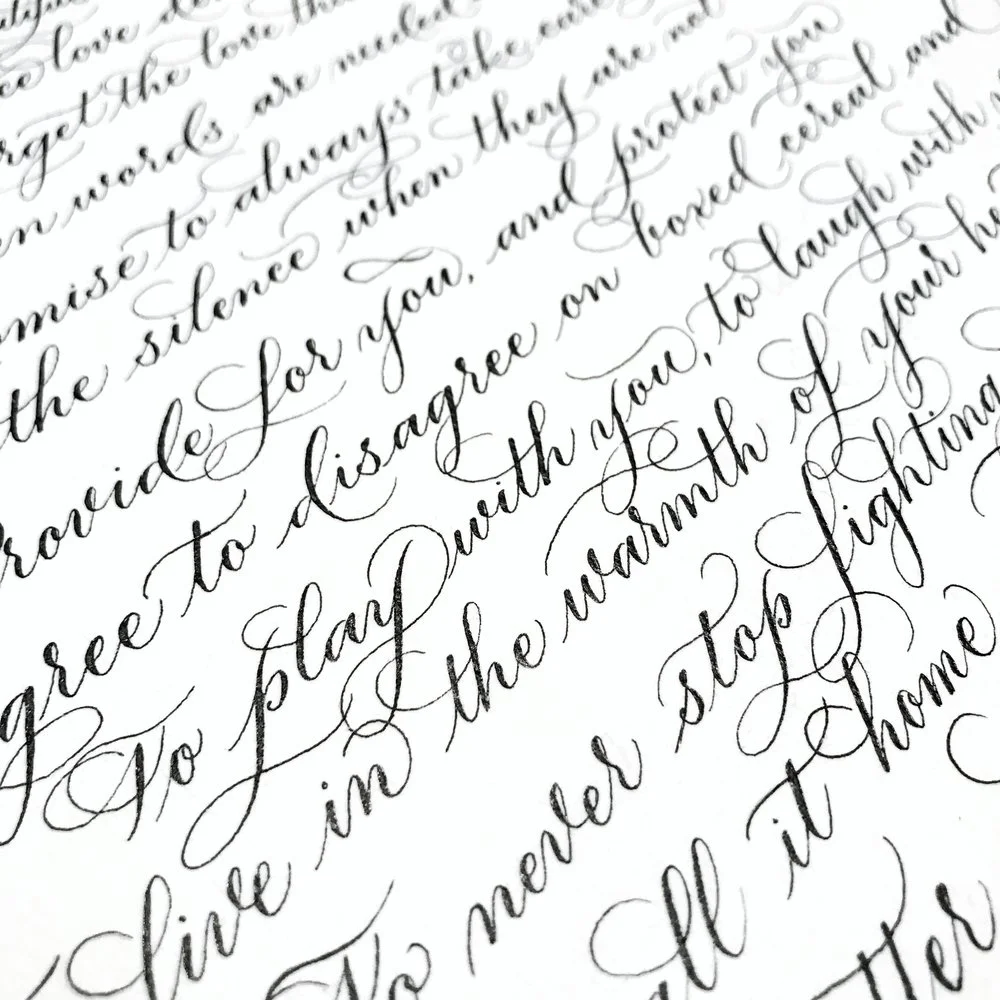 love
rget the love
en words are needed
omise to always take care
the silence when they are not
rovide for you, and protect you
gree to disagree on boxed cereal and
To play with you, to laugh with
live in the warmth of your
To never stop fighting
all it home
tter